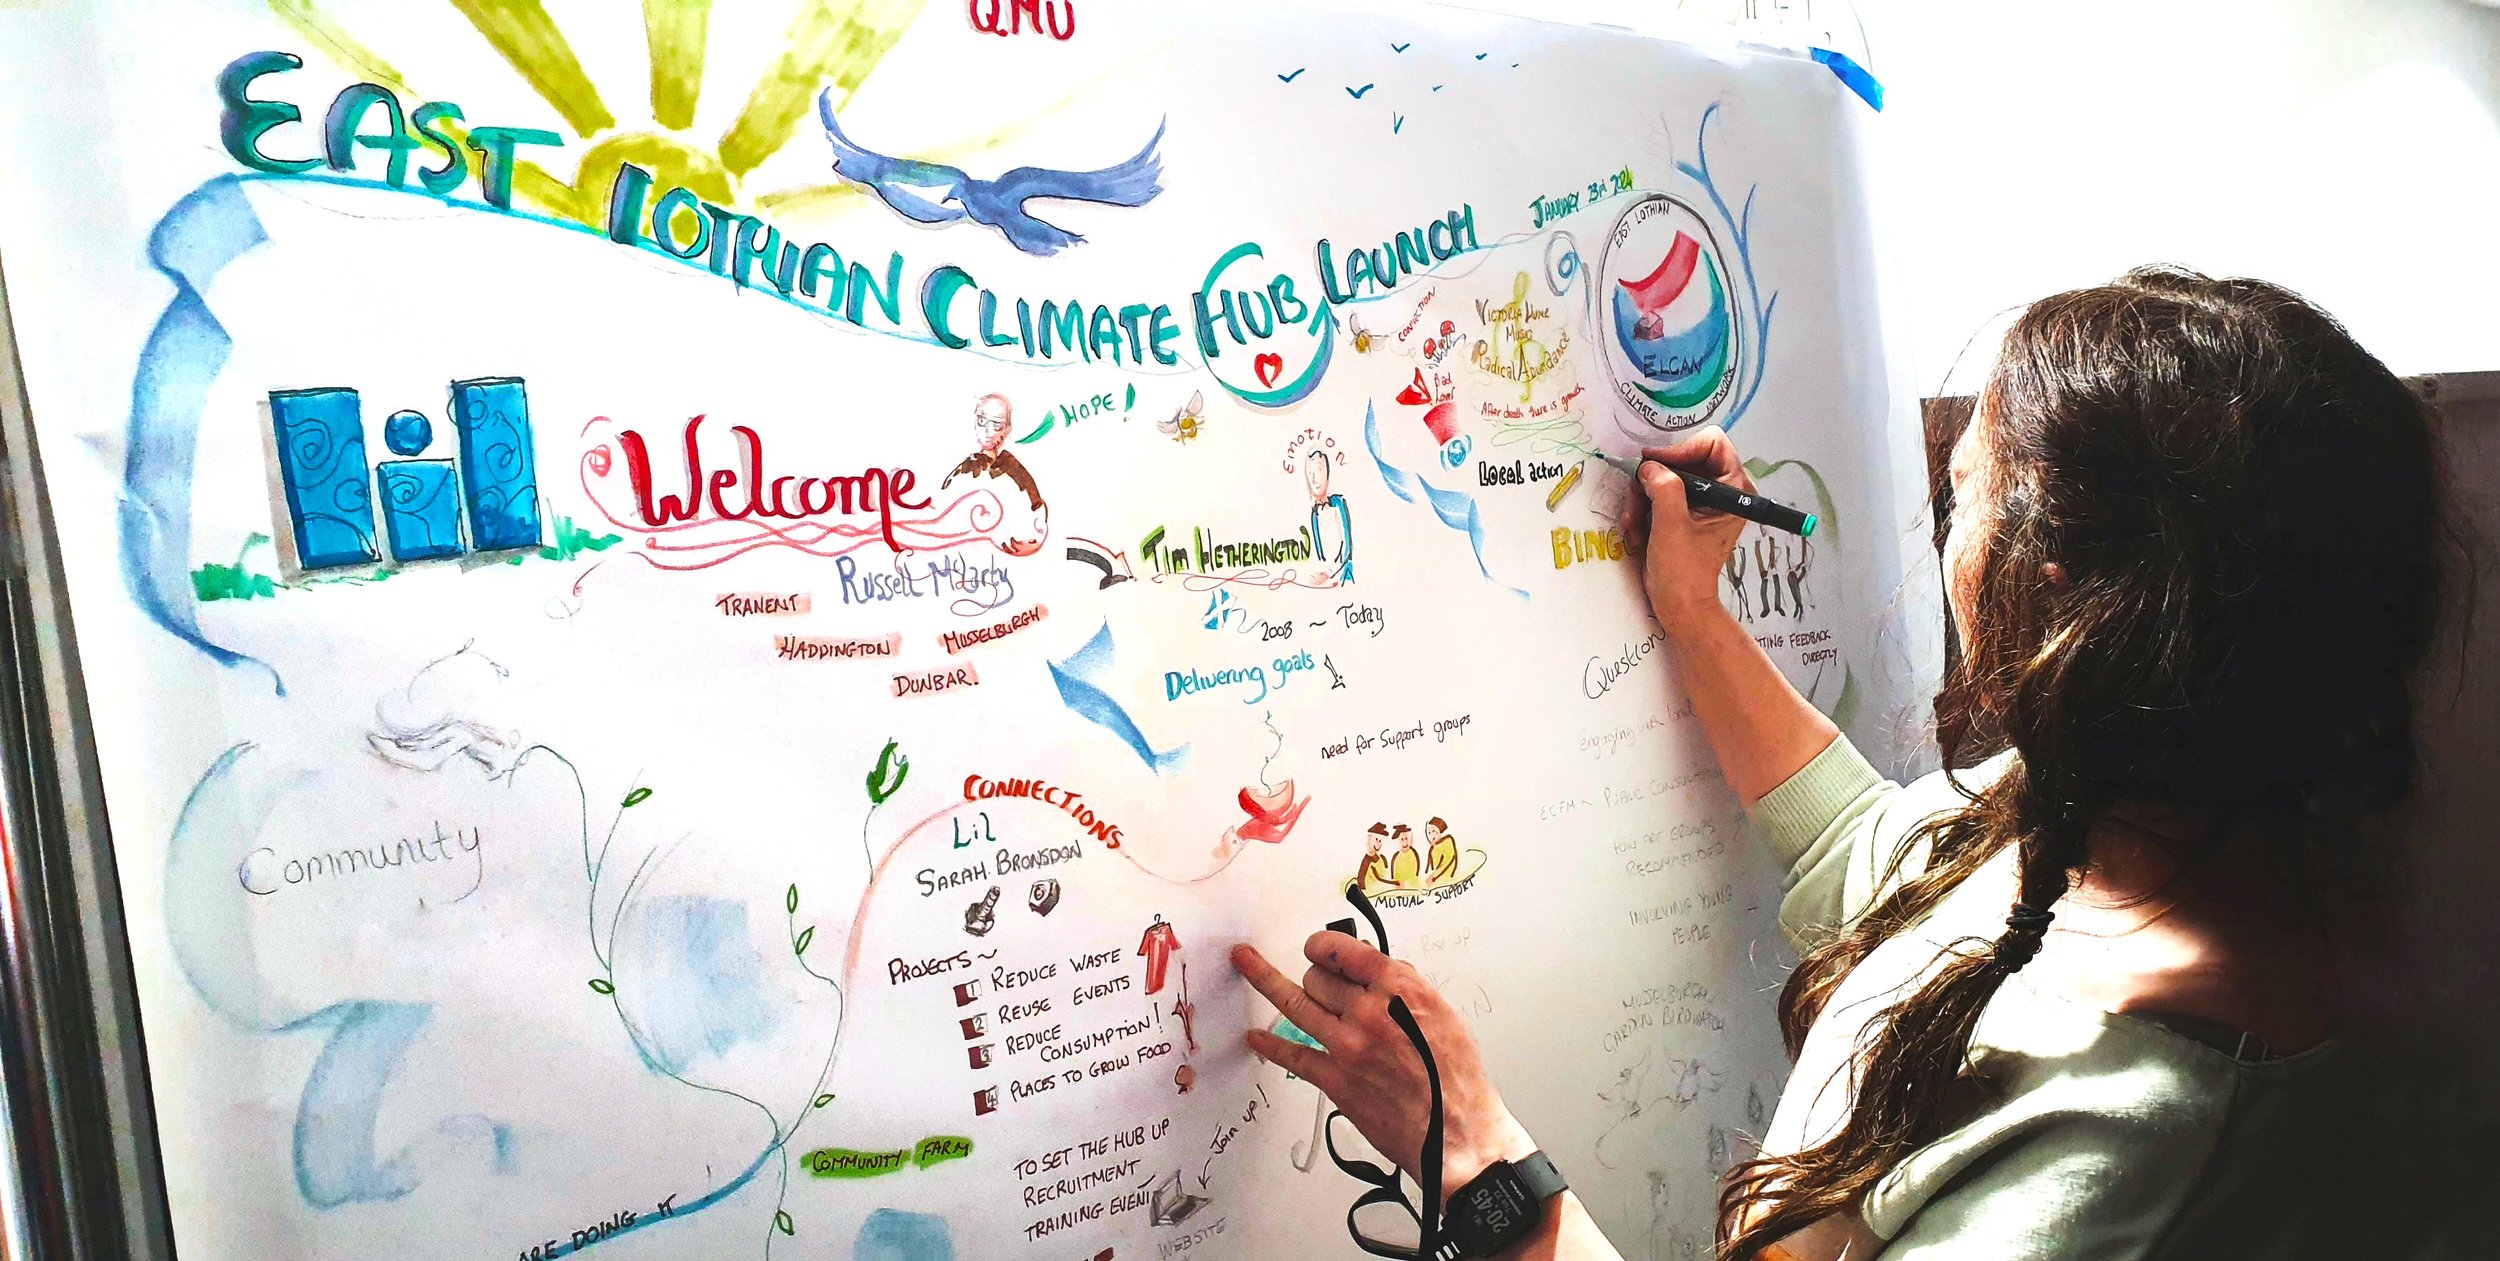 QMU
EAST LOTHIAN CLIMATE HUB LAUNCH
JANUARY 23rd 2024
EAST LOTHIAN
ELCAN
CLIMATE ACTION NETWORK
lil
Welcome
HOPE!
Russell McLarty
TRANENT
HADDINGTON
MUSSELBURGH
DUNBAR.
EMOTION
TIM HETHERINGTON
2008 ~ Today
Delivering goals
need for support groups
MUTUAL SUPPORT
CONNECTION
Bad
Lover
VICTORIA HUME
MUSIC
Radical Abundance
After death there is growth
LOCAL action
BING
TTING FEEDBACK
DIRECTLY
Question
engaging with
ECFM ~ PUBLIC CONSULTATION
HOW ARE GROUPS
RECOMMENDED
INVOLVING YOUNG
PEOPLE
MUSSELBURGH
GARDEN BIRDWATCH
Community
CONNECTIONS
Lil
SARAH BRONSDON
PROJECTS ~
1 REDUCE WASTE
2 REUSE EVENTS
3 REDUCE
CONSUMPTION!
4 PLACES TO GROW FOOD
COMMUNITY FARM
TO SET THE HUB UP
RECRUITMENT
TRAINING EVENT
Join up!
WEBSITE
ARE DOING IT
20:45